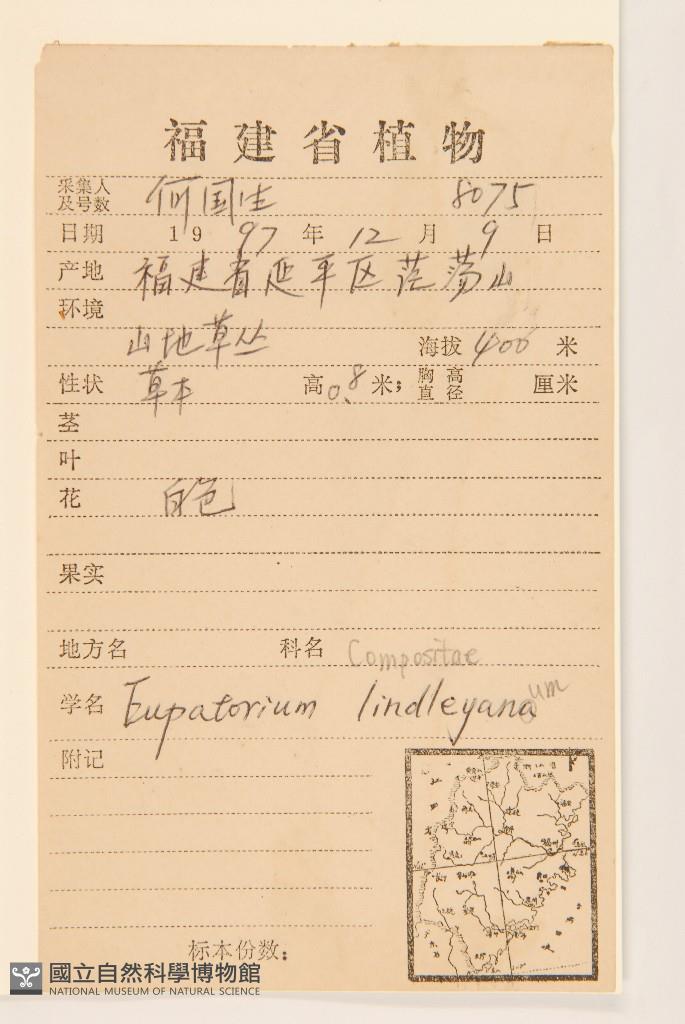 福建省植物
采集人及号数 何国生 8075
日期 1997年12月9日
产地 福建省延平区茫荡山
环境
山地草丛 海拔 400 米
性状 草本 高 0.8 米; 胸高直径 厘米
茎
叶
花 白色
果实
地方名 科名 Compositae
学名 Eupatorium lindleyana um
附记
标本份数:
國立自然科學博物館
NATIONAL MUSEUM OF NATURAL SCIENCE